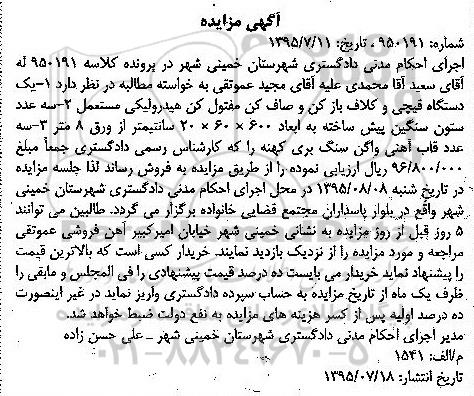 آگهی مزایده
شماره: ۹۵۰۱۹۱ ، تاریخ: ۱۳۹۵/۷/۱۱
اجرای احکام مدنی دادگستری شهرستان خمینی شهر در پرونده کلاسه ۹۵۰۱۹۱ له
آقای سعید آقا محمدی علیه آقای مجید عموتقی به خواسته مطالبه در نظر دارد ۱-یک
دستگاه قیچی و کلاف باز کن و صاف کن مفتول کن هیدرولیکی مستعمل ۲-سه عدد
ستون سنگین پیش ساخته به ابعاد ۶۰۰ × ۶۰ × ۲۰ سانتیمتر از ورق ۸ متر ۳-سه
عدد قاب آهنی واگن سنگ بری کهنه را که کارشناس رسمی دادگستری جمعاً مبلغ
۹۶/۸۰۰/۰۰۰ ریال ارزیابی نموده را از طریق مزایده به فروش رساند لذا جلسه مزایده
در تاریخ شنبه ۱۳۹۵/۰۸/۰۸ در محل اجرای احکام مدنی دادگستری شهرستان خمینی
شهر واقع در بلوار پاسداران مجتمع قضایی خانواده برگزار می گردد. طالبین می توانند
۵ روز قبل از روز مزایده به نشانی خمینی شهر خیابان امیرکبیر آهن فروشی عموتقی
مراجعه و مورد مزایده را از نزدیک بازدید نمایند. خریدار کسی است که بالاترین قیمت
را پیشنهاد نماید خریدار می بایست ده درصد قیمت پیشنهادی را فی المجلس و مابقی را
ظرف یک ماه از تاریخ مزایده به حساب سپرده دادگستری واریز نماید در غیر اینصورت
ده درصد اولیه پس از کسر هزینه های مزایده به نفع دولت ضبط خواهد شد.
مدیر اجرای احکام مدنی دادگستری شهرستان خمینی شهر ـ علی حسن زاده
م/الف: ۱۵۴۱
تاریخ انتشار: ۱۳۹۵/۰۷/۱۸
۰۲۱-۸۸۳۴۹۶۷۰-۵